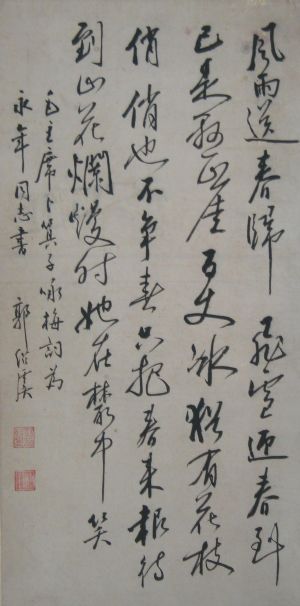 風雨送春歸飛雪迎春到
已是懸崖百丈冰猶有花枝
俏俏也不爭春只把春來報待
到山花爛熳時她在叢中笑
毛主席卜算子咏梅詞為
永年同志書 郭紹虞